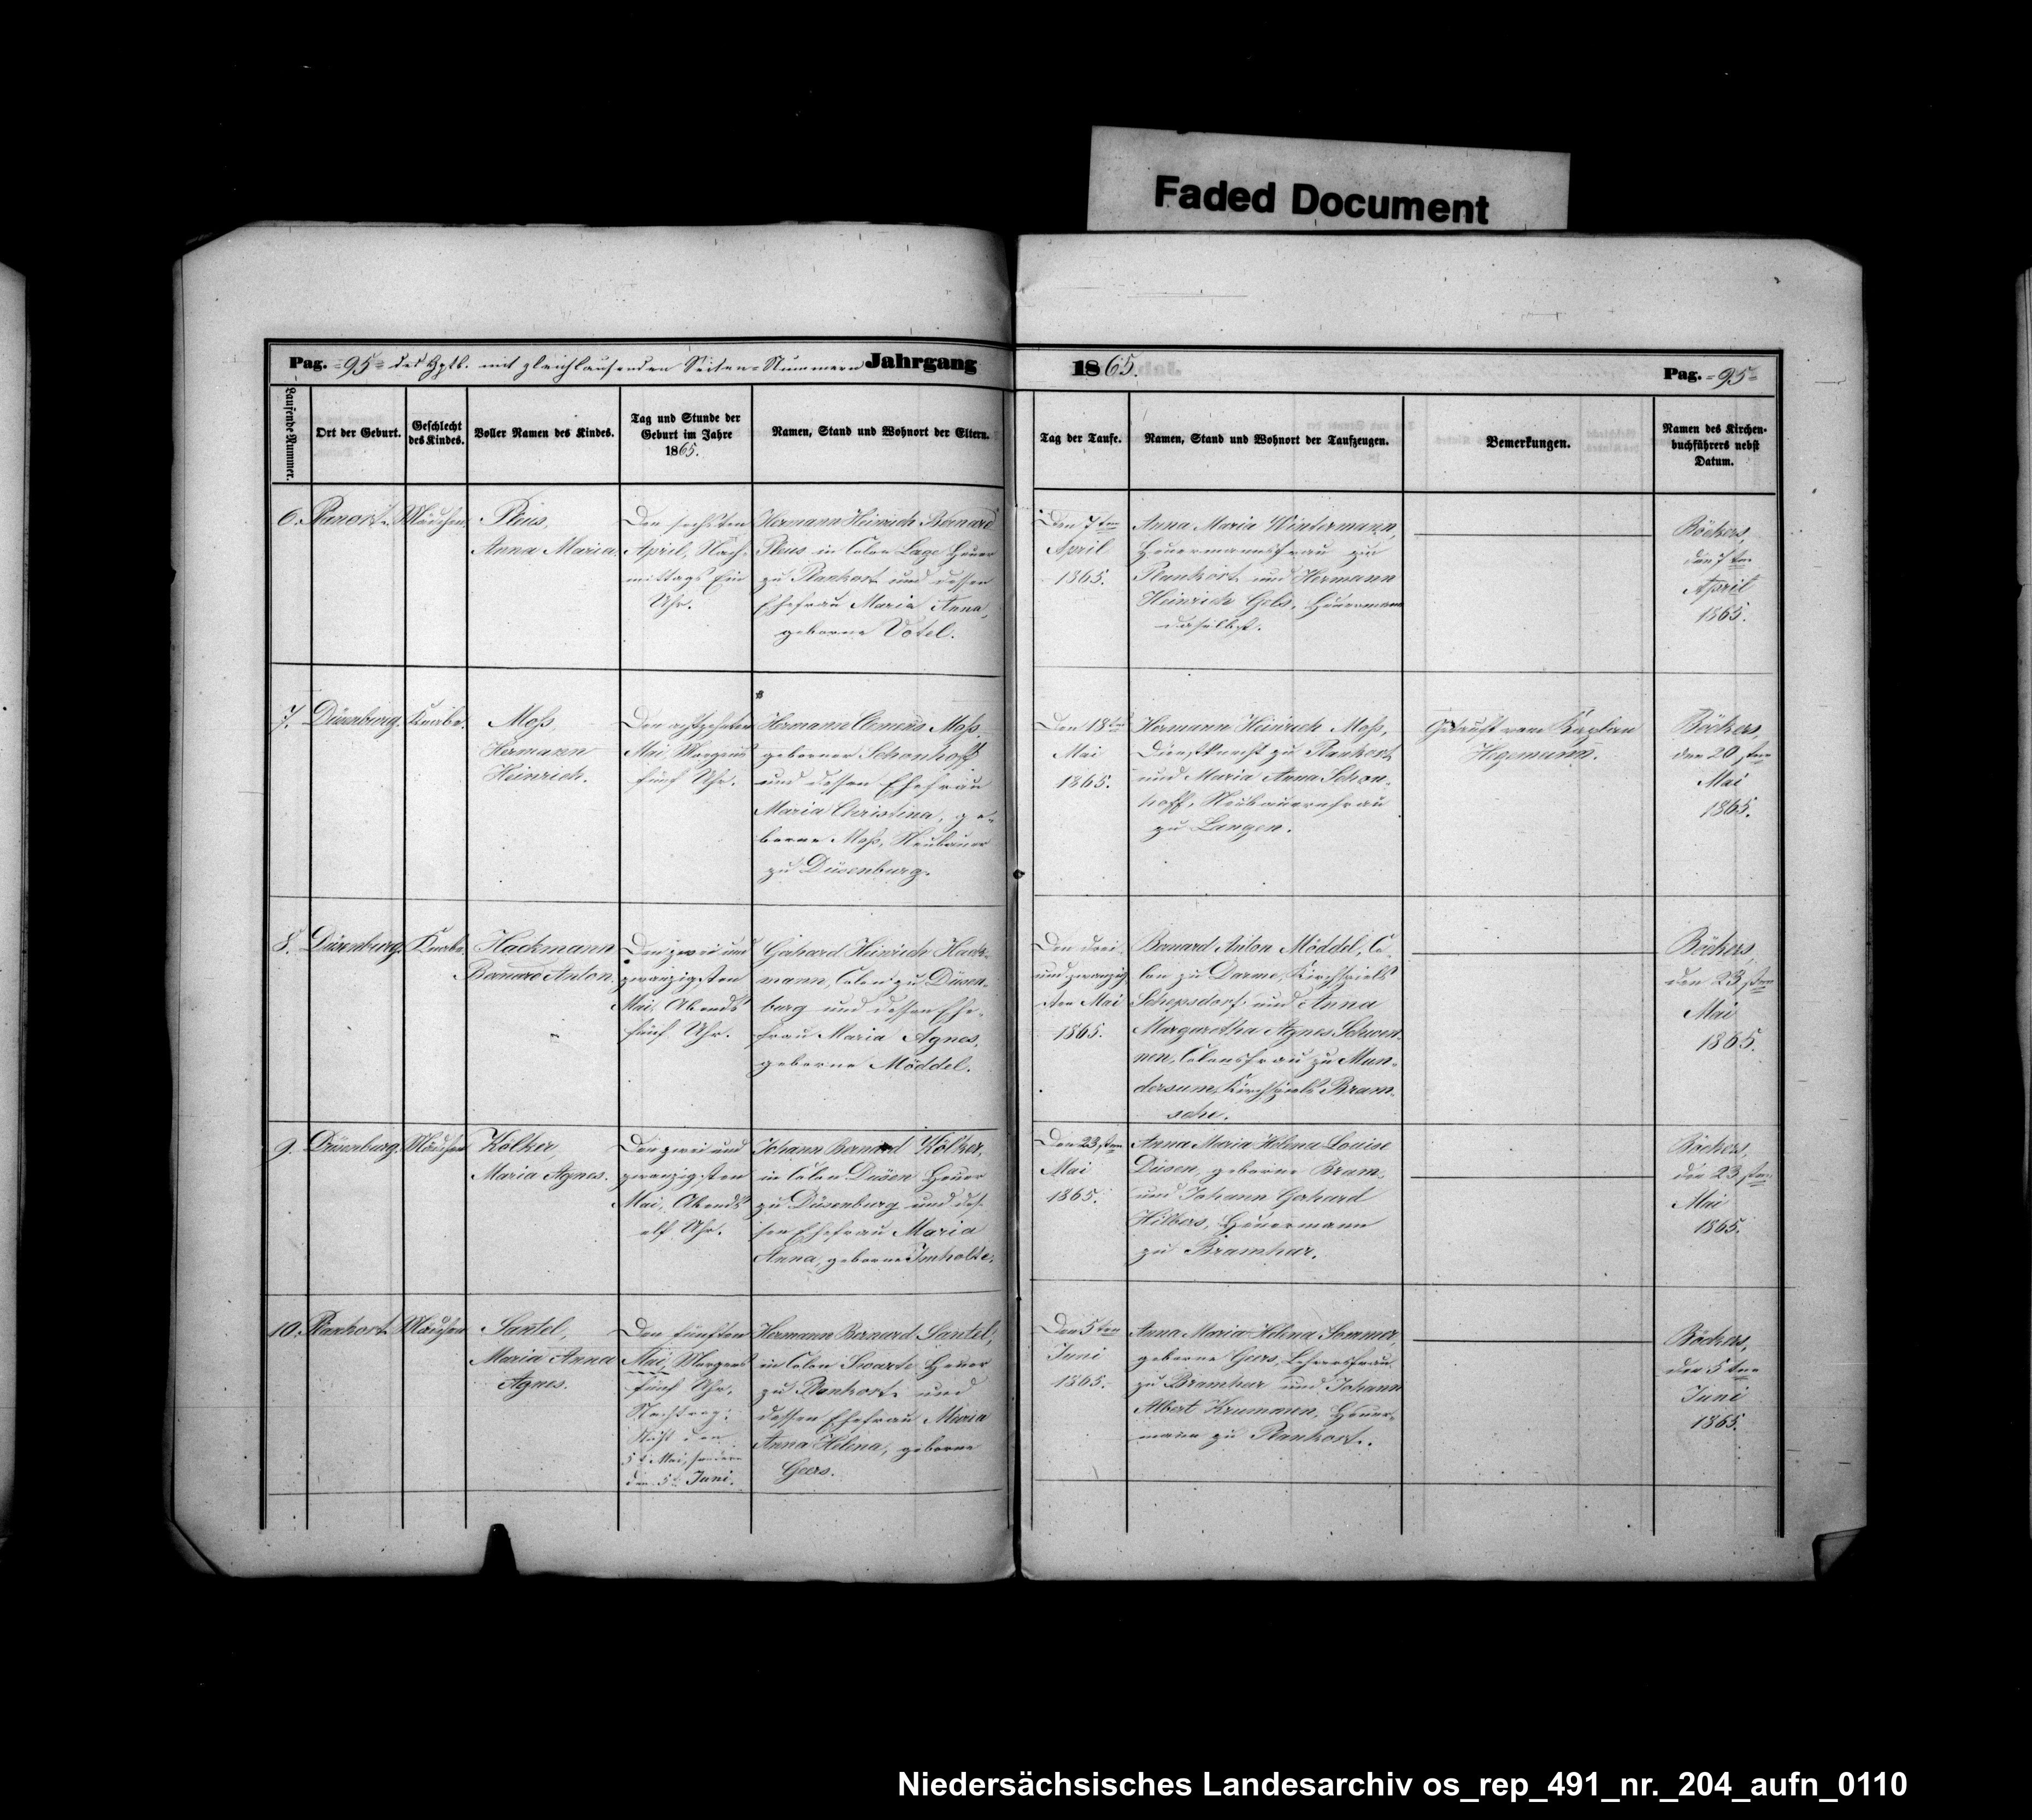 Faded Document
Pag. =95= des Hptb. mit gleichlaufenden Seiten-Nummern Jahrgang
1865.
Pag. =95=
Laufende Nummer.
Ort der Geburt.
Geschlecht
des Kindes.
Voller Namen des Kindes.
Tag und Stunde der
Geburt im Jahre
1865.
Namen, Stand und Wohnort der Eltern.
Tag der Taufe.
Namen, Stand und Wohnort der Taufzeugen.
Bemerkungen.
Namen des Kirchen-
buchführers nebst
Datum.
6.
Mädchen
Pleus,
Anna Maria
Den sechsten
April, Nach-
mittags Ein
Uhr.
Hermann Heinrich Bernard
Pleus in Colon Lage Heuer
zu Plankort und dessen
Ehefrau Maria Anna,
geborne Votel.
Den 7ten
April
1865.
Anna Maria Wintermann,
Heuermannsfrau zu
Plankort und Hermann
Heinrich Gels, Heuermann
daselbst.
Böckers,
den 7ten
April
1865.
7.
Düsenburg.
Knabe.
Moß,
Hermann
Heinrich.
Den achtzehnten
Mai, Morgens
fünf Uhr.
Hermann Clemens Moß,
geborner Schonhoff
und dessen Ehefrau
Maria Christina, ge-
borne Moß, Neubauer
zu Düsenburg.
Den 18ten
Mai
1865.
Hermann Heinrich Moß,
Dienstknecht zu Plankort
und Maria Anna Schon-
hoff, Neubauernfrau
zu Langen.
Getauft vom Kaplan
Hegemann.
Böckers,
den 20sten
Mai
1865.
8.
Düsenburg.
Knabe.
Hackmann
Bernard Anton.
Den zwei und
zwanzigsten
Mai, Abends
fünf Uhr.
Gerhard Heinrich Hack-
mann, Colon zu Düsen-
burg und dessen Ehe-
frau Maria Agnes,
geborne Möddel.
Den drei
und zwanzig
sten Mai
1865.
Bernard Anton Möddel, Co-
lon zu Darme, Kirchspiels
Schepsdorf und Anna
Margaretha Agnes
Colonsfrau zu Mun-
dersum, Kirchspiels Bram-
sche.
Böckers,
den 23sten
Mai
1865.
9.
Düsenburg.
Mädchen
Kölker,
Maria Agnes.
Den zwei und
zwanzigsten
Mai, Abends
elf Uhr.
Johann Bernard Kölker,
in Colon Düsen Heuer
zu Düsenburg und des-
sen Ehefrau Maria
Anna, geborne Imholte.
Den 23sten
Mai
1865.
Anna Maria Helena Louise
Düsen, geborne Bram,
und Johann Gerhard
Hilbers, Heuermann
zu Bramhar.
Böckers,
den 23sten
Mai
1865.
10.
Plankort.
Mädchen
Santel,
Maria Anna
Agnes.
Den fünften
Mai, Morgens
fünf Uhr.
Nachtrag:
Nicht den
5t Mai, sondern
den 5t Juni.
Hermann Bernard Santel,
in Colon Swarte Heuer
zu Plankort und
dessen Ehefrau Maria
Anna Helena, geborne
Geers.
Den 5ten
Juni
1865.
Anna Maria Helena Sommer,
geborne Geers, Lehrersfrau
zu Bramhar und Johann
Albert Krummen, Heuer-
mann zu Plankort.
Böckers,
den 5ten
Juni
1865.
Niedersächsisches Landesarchiv os_rep_491_nr._204_aufn_0110